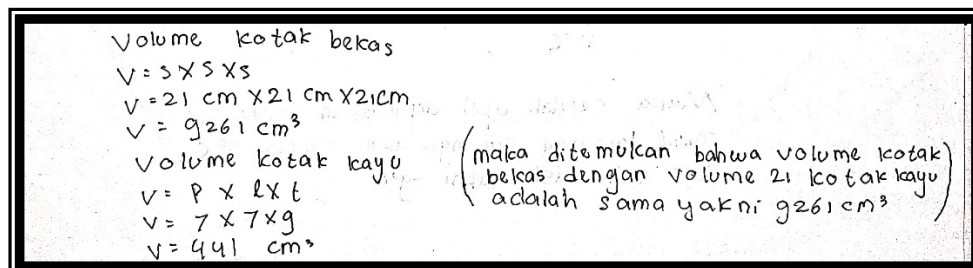 Volume kotak bekas
V = s x s x s
V = 21 cm x 21 cm x 21 cm
V = 9261 cm³
Volume kotak kayu
V = P x l x t
V = 7 x 7 x 9
V = 441 cm³
(maka ditemukan bahwa volume kotak
bekas dengan volume 21 kotak kayu
adalah sama yakni 9261 cm³)